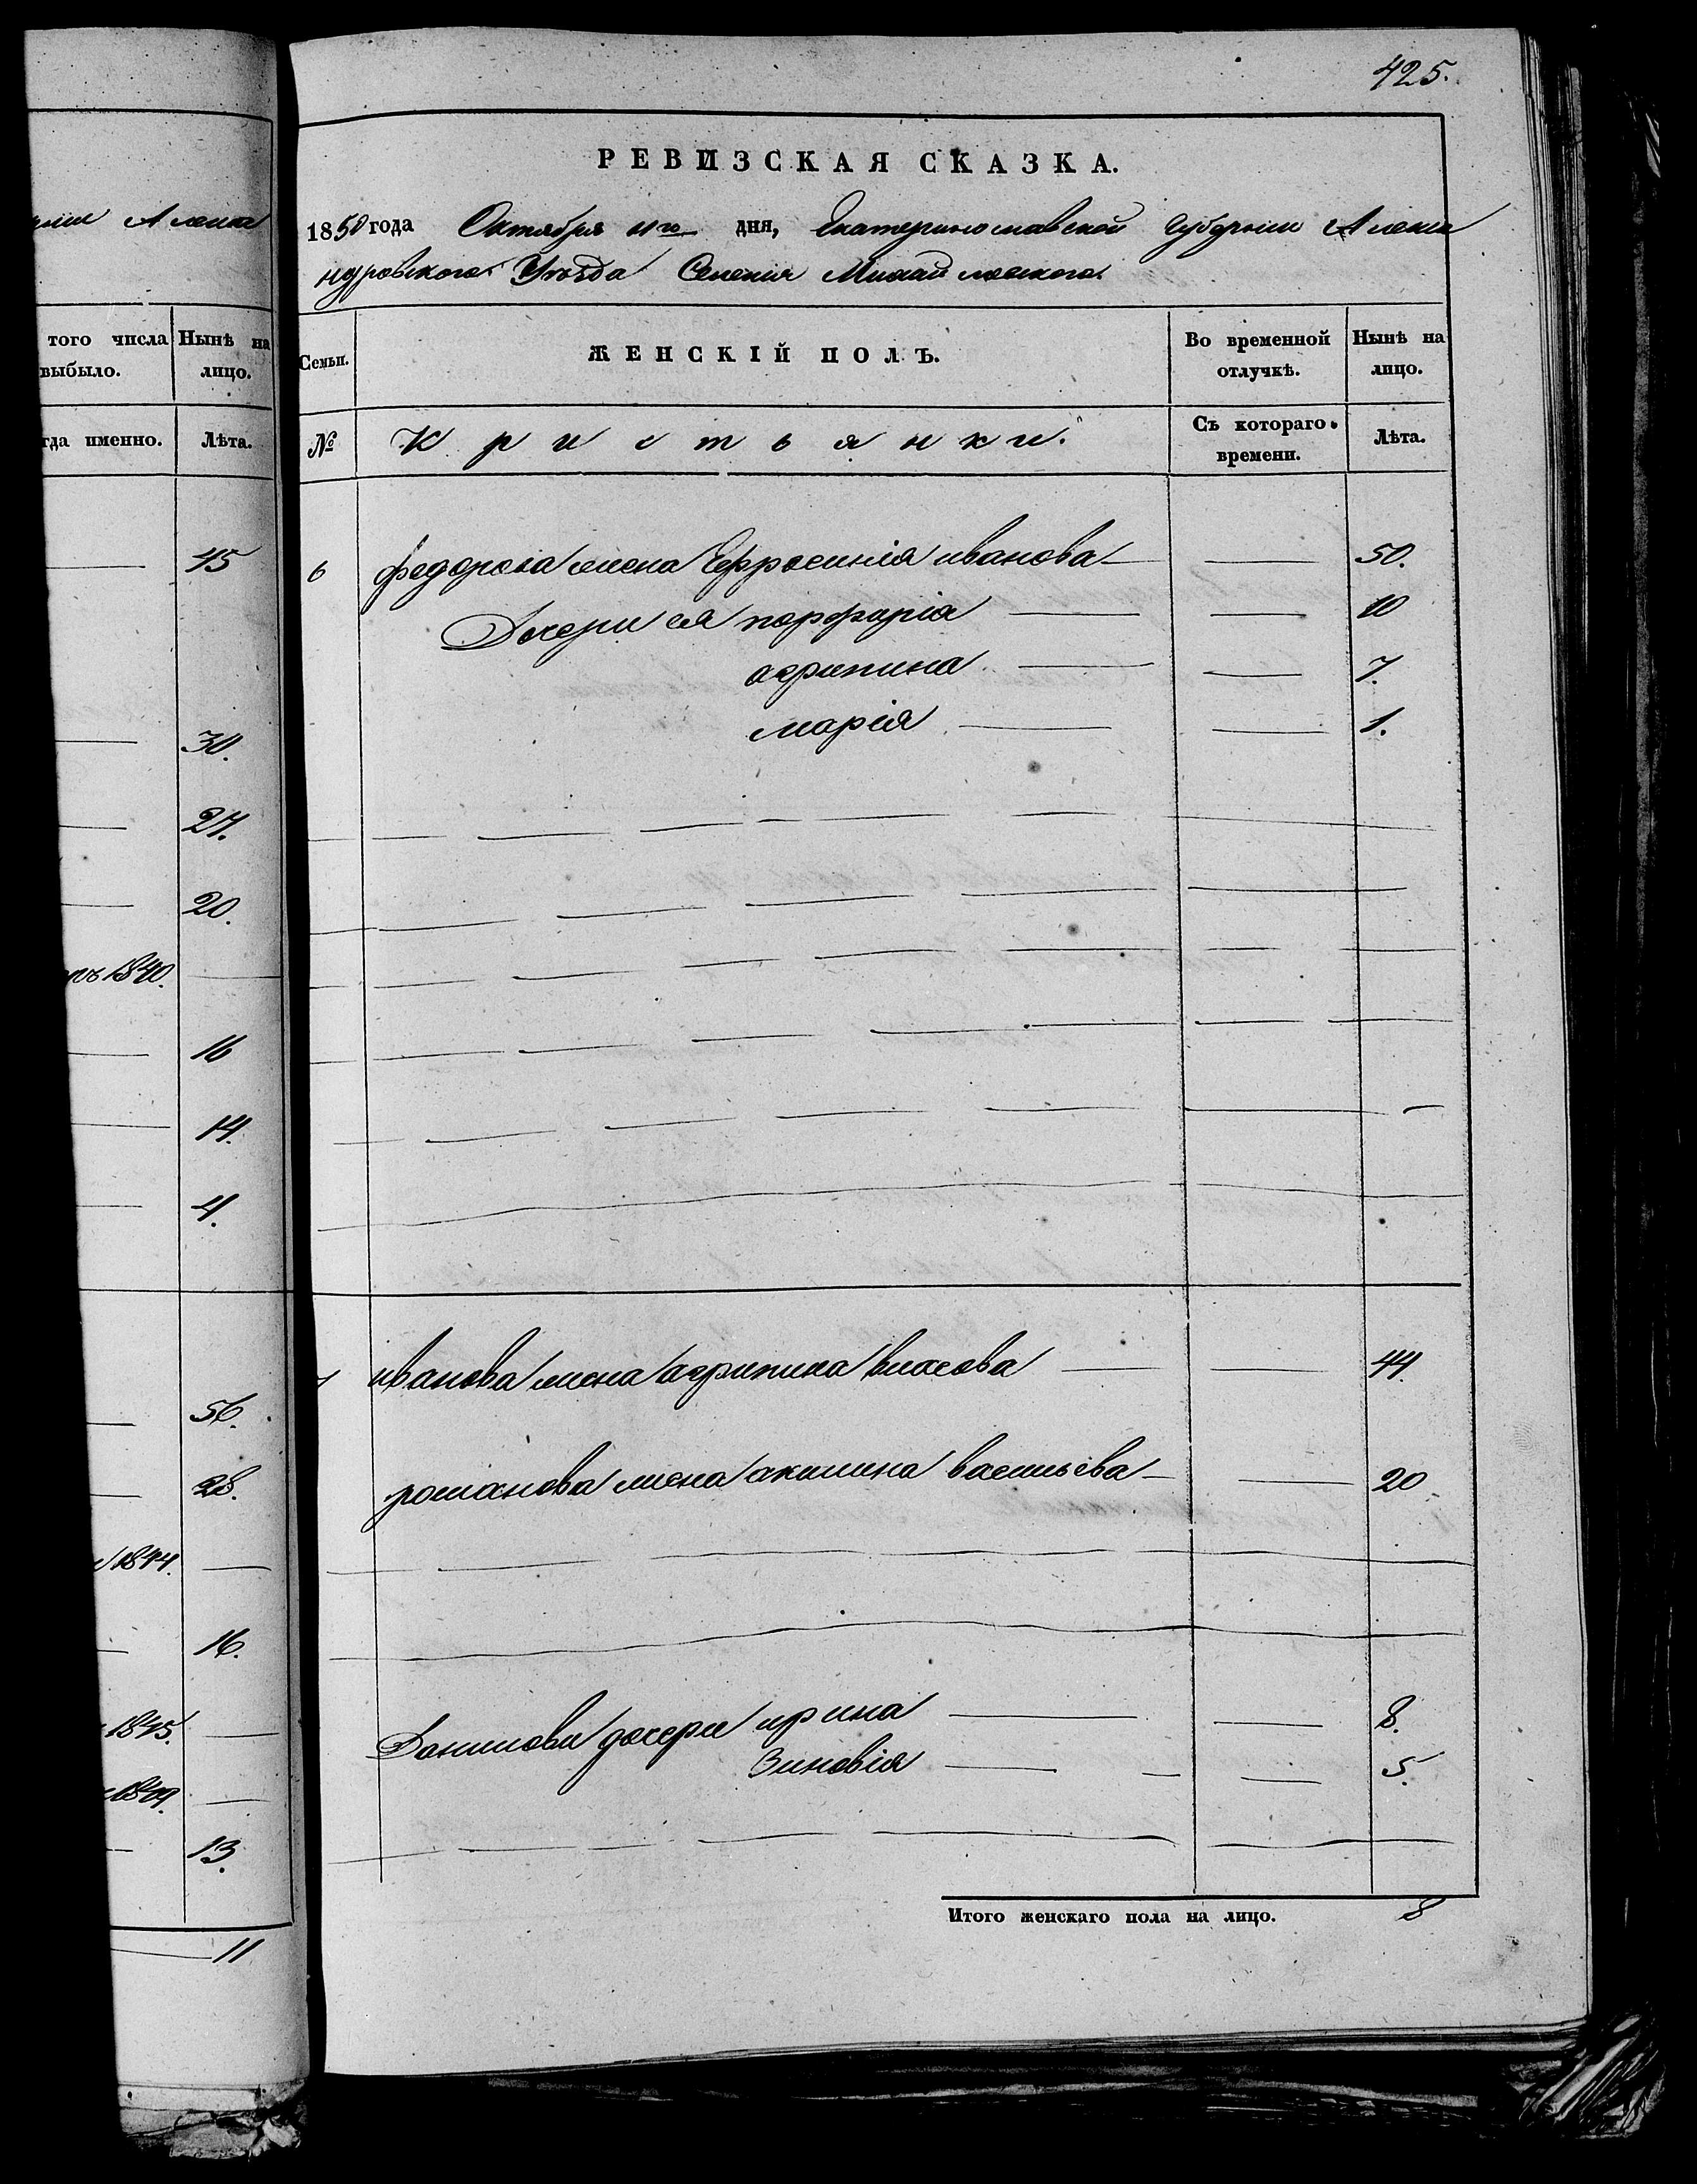 425.
РЕВИЗСКАЯ СКАЗКА.
1850 года Октября 11го дня, Екатеринославской Губернии Алекса
ндровского Уѣзда Селения Михайловского
Семьи. ЖЕНСКІЙ ПОЛЪ. Во временной отлучкѣ. Нынѣ на лицо.
№ Кристьянки. Съ котораго времени. Лѣта.
6 федорова жена Ефросинія иванова — — 50.
Дочери ея порфирія — — 10
агрипина — — 7.
марія — — 1.
иванова жена агрипина власова — — 44.
романова жена акилина васильева — — 20
Данилови дочери ирина — — 8.
Зиновія — — 5.
Итого женскаго пола на лицо. 8
того числа выбыло. Нынѣ на лицо.
гда именно. Лѣта.
45
30.
27.
20.
1840.
16
14.
4.
56.
28.
1844.
16.
1845.
13.
11